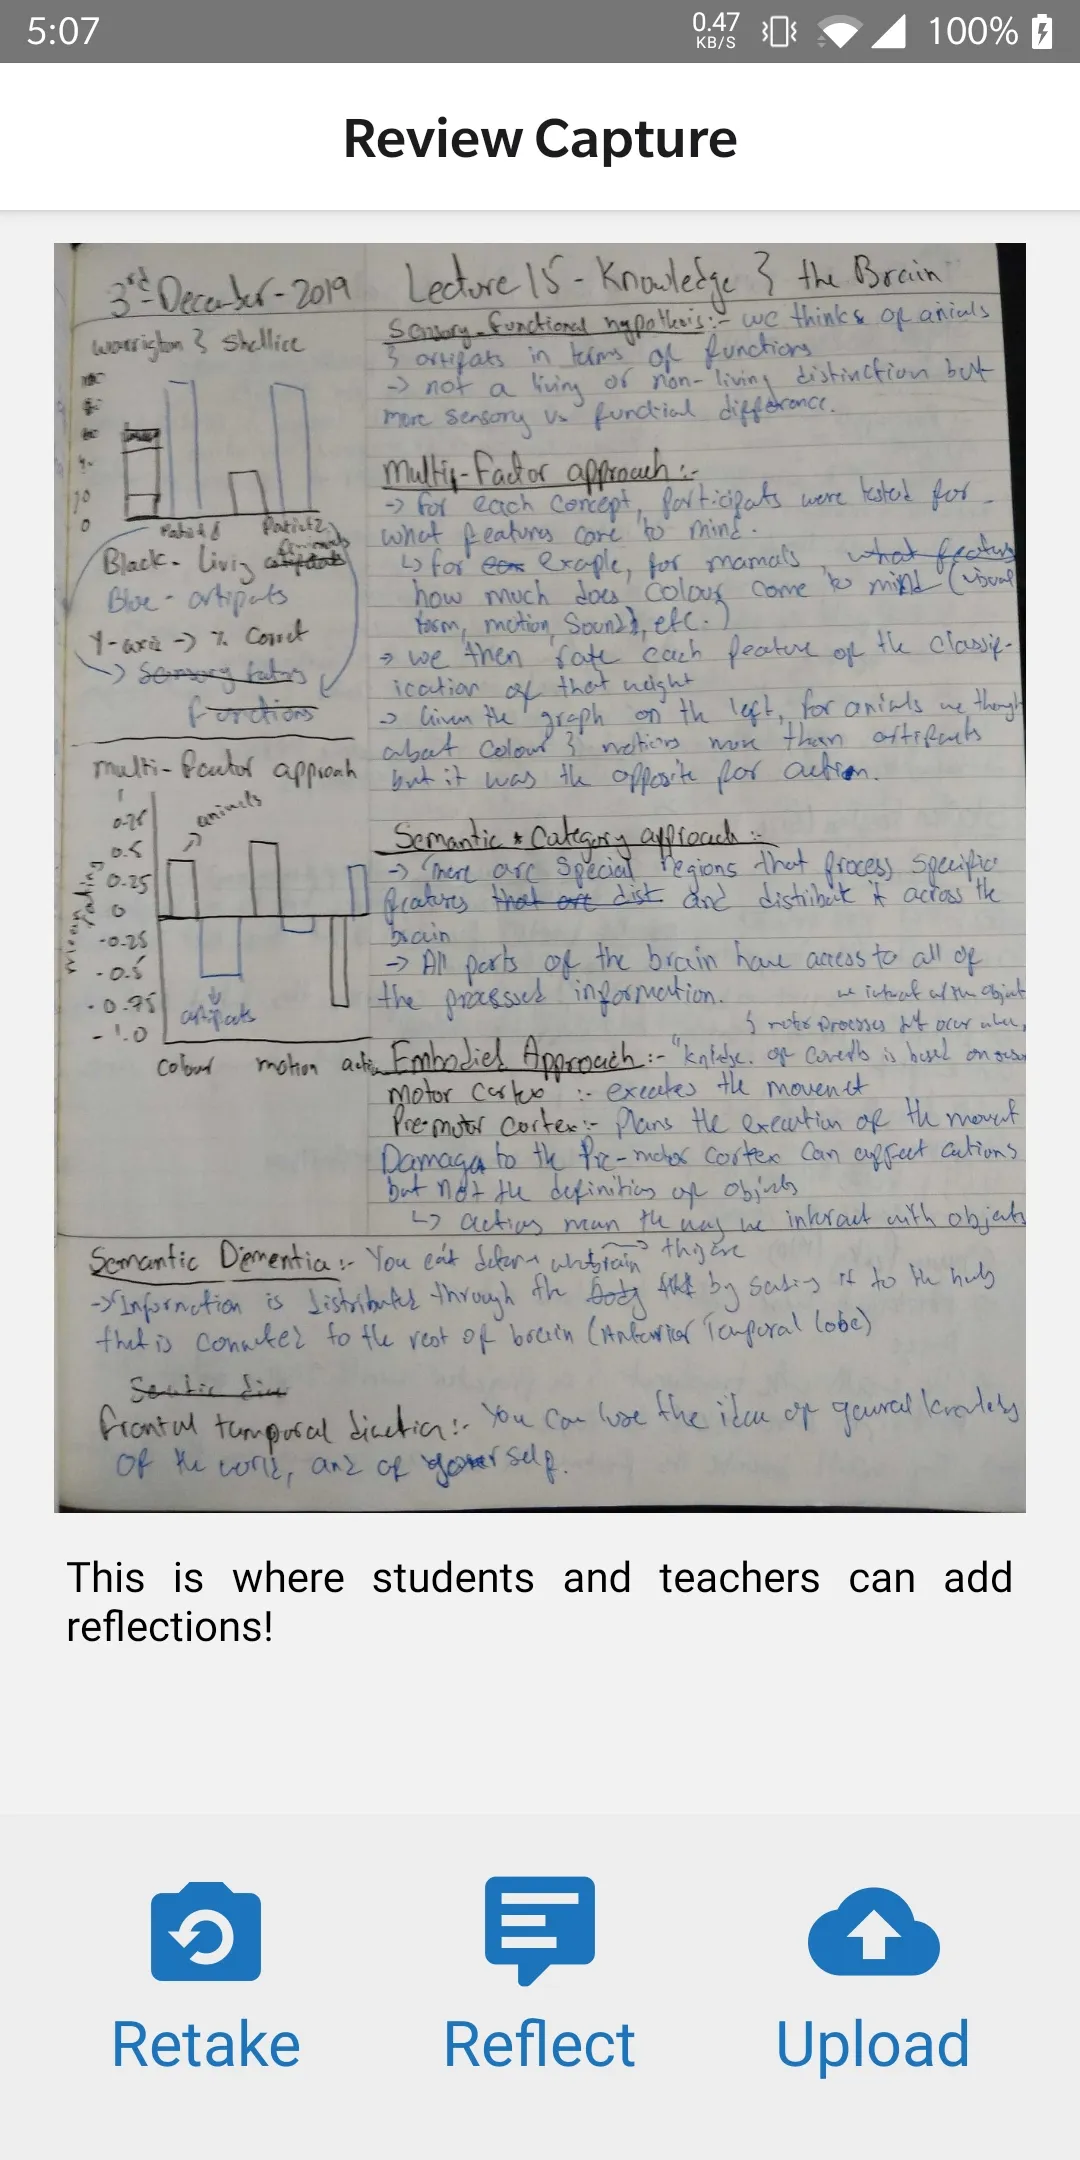 5:07
0.47
KB/S
100%
Review Capture
3rd - December - 2019
Lecture 15 - Knowledge & the Brain
Sensory-Functional hypothesis:- we thinks of
& in terms of functions
-> not a living or non-living distinction but
more sensory vs difference.
& Shallice
0
Patient 2
Black - 
Blue - 
Y-axis -> %
-> Sensory
functions
Multi-Factor approach:-
-> for each concept, were tested for
what features to mind.
↳ for for
how much does colour come to mind (visual
form, motion, sound, etc.)
-> we then rate each feature of the classif-
ication of that
-> Given the graph on the left, for we
colour & more than
but it was the opposite for action.
multi-factor
Mean rating
0.75
0.5
0.25
0
-0.25
-0.5
-0.75
-1.0
animals
colour motion
Semantic * Category approach:-
-> There are special regions that process specific
features that are dist and it across the
brain
-> All parts of the brain have access to all of
the processed information.
Embodied Approach:- of is based on
Motor :- the
Pre-motor cortex:- plans the execution of the
Damage to the Pre-motor cortex can affect actions
but not the of objects
↳ actions mean the way we interact with objects
Semantic Dementia:- You
-> Information is distributed through the body by it to the hub
that is connected to the rest of brain (Anterior Temporal lobe)
Frontal temporal :- You can lose the idea of general
of the world, and of yourself.
This is where students and teachers can add
reflections!
Retake
Reflect
Upload